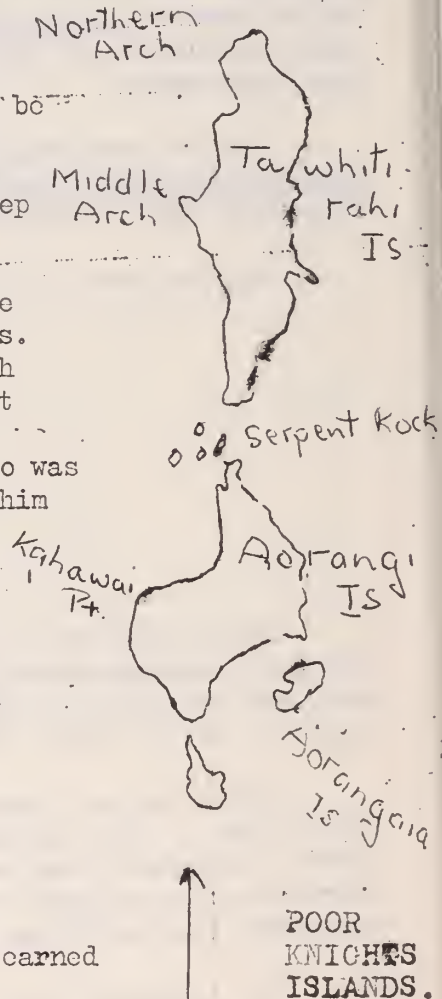 Northern
Arch
be
Middle
Arch
Tawhiti
rahi
Is
ep
e
s.
h
t
Serpent Rock
o was
him
Kahawai
Pt.
Aorangi
Is
Aorangaia
Is
earned
POOR
KNIGHTS
ISLANDS.